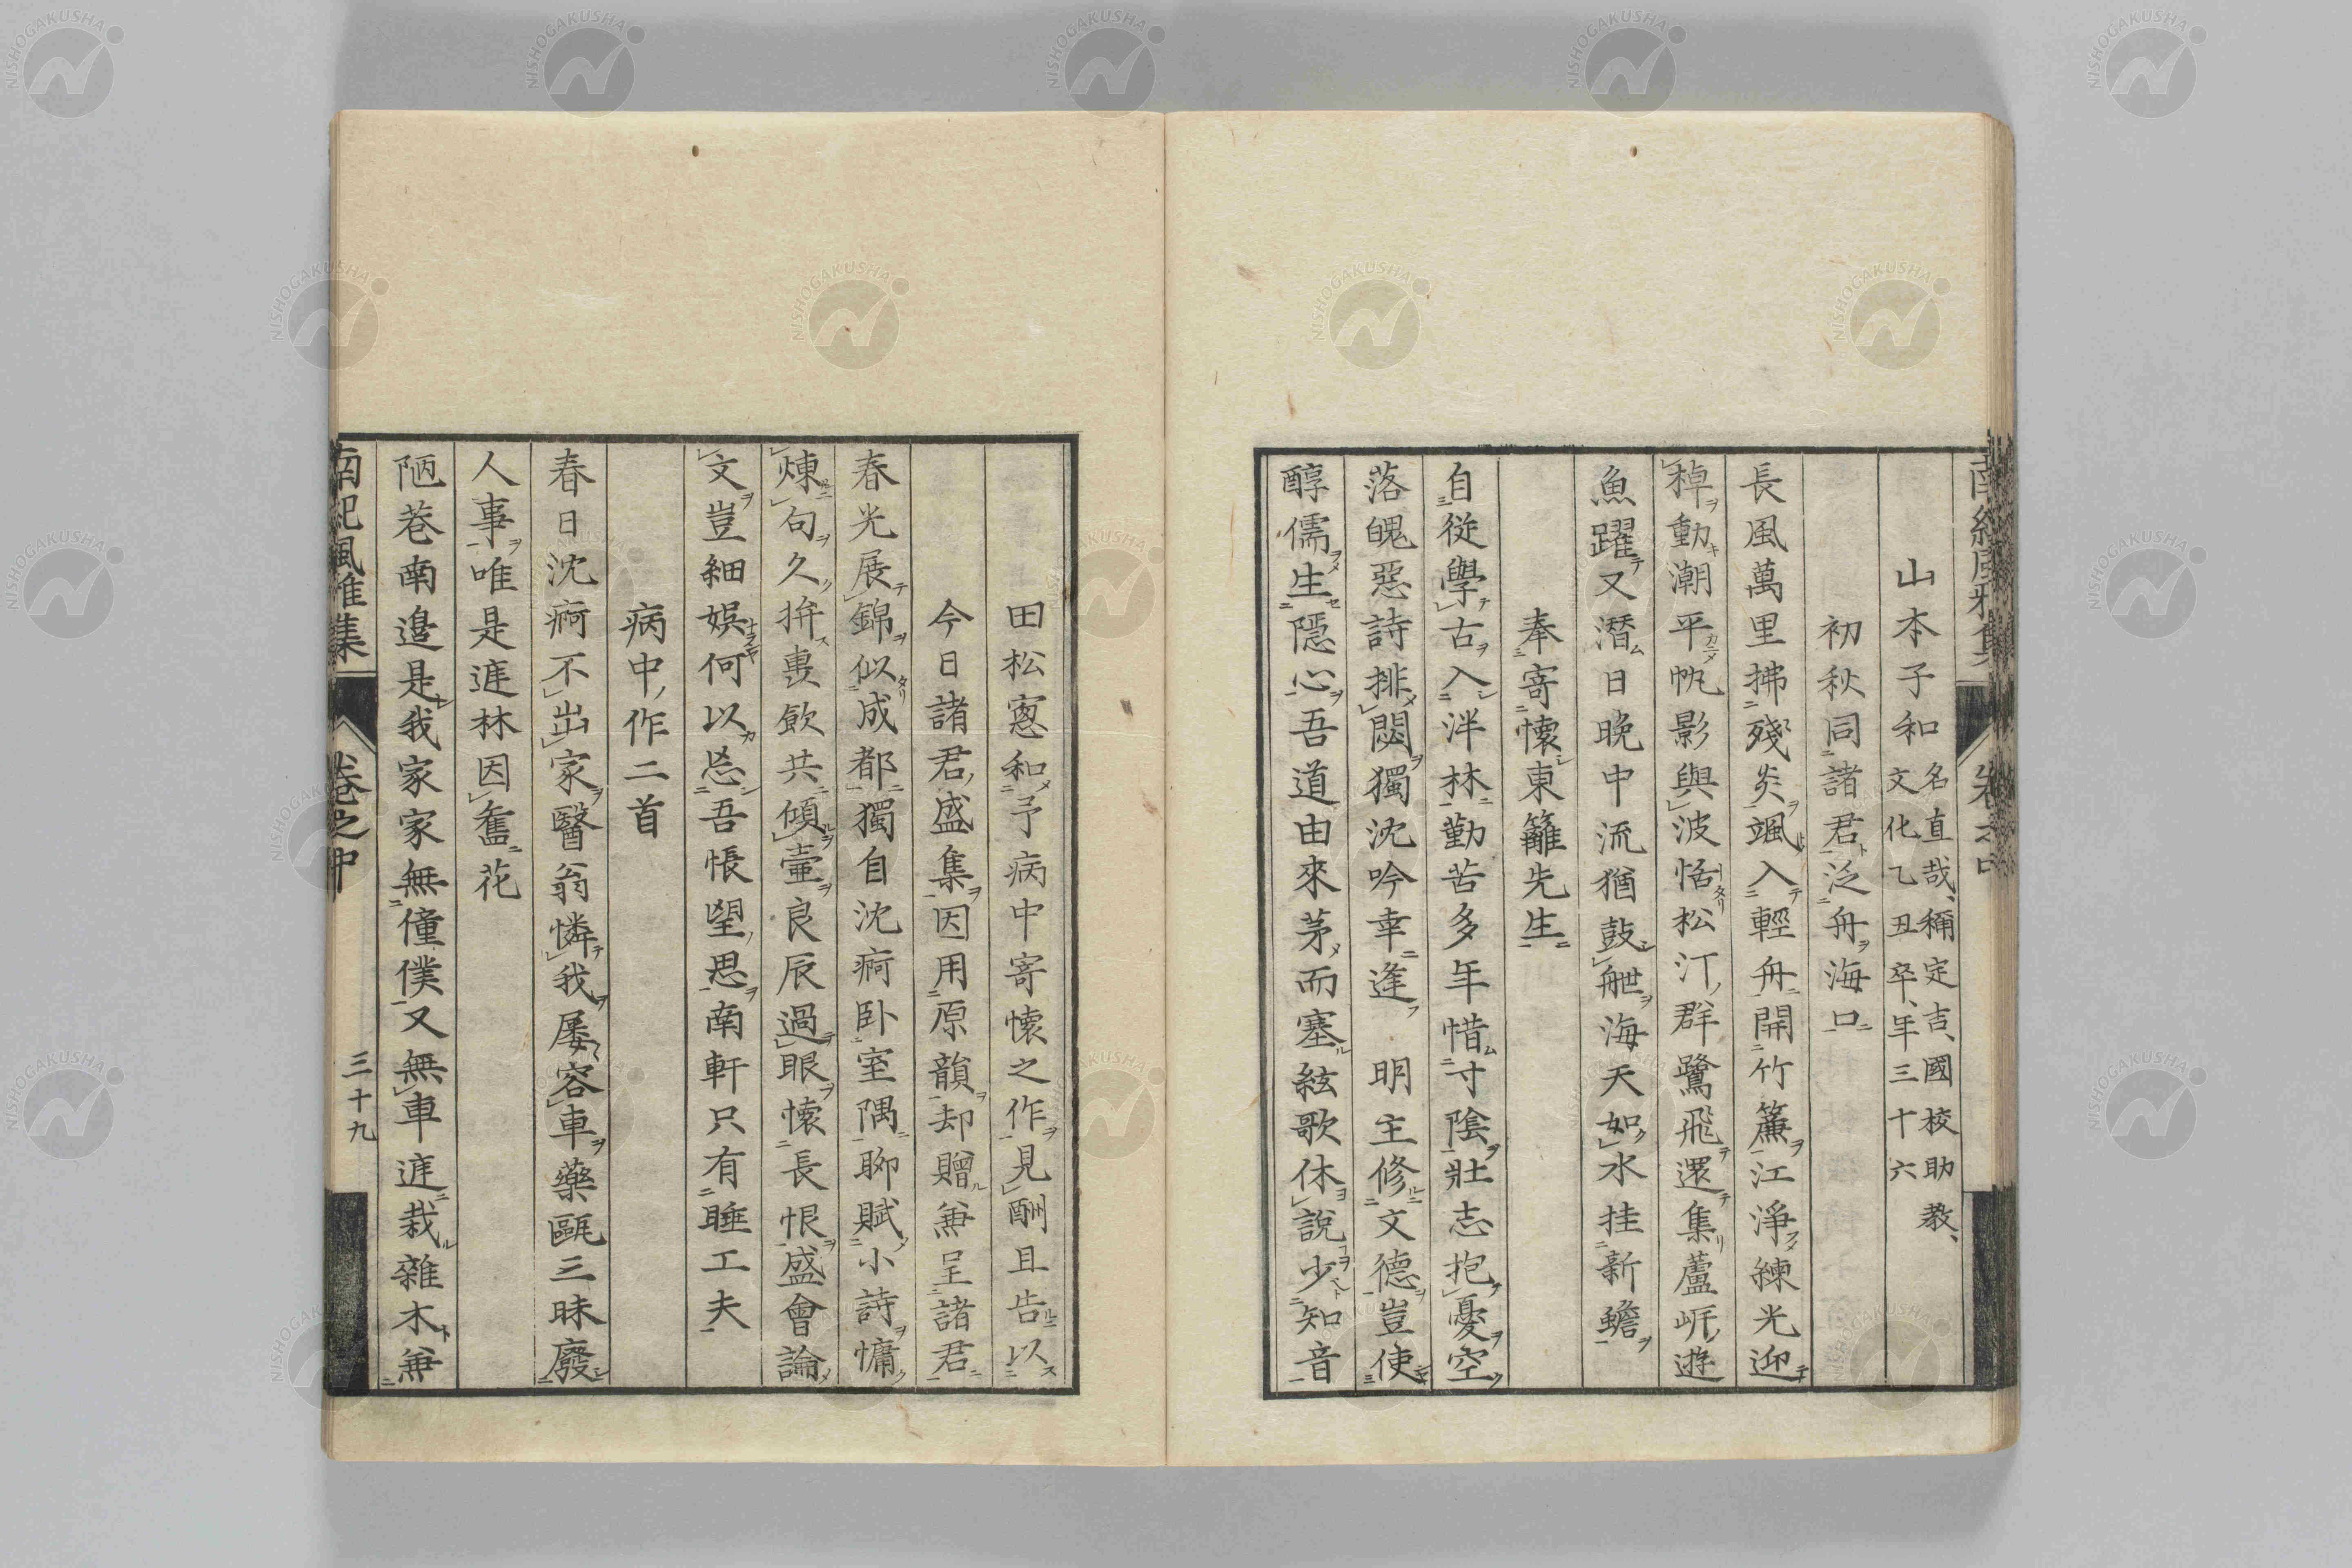 山本子和 名直哉、稱定吉、國校助教、
文化乙丑卒、年三十六
初秋同諸君泛舟海口
長風萬里拂殘炎颯入輕舟開竹簾江淨練光迎
棹動潮平帆影與波恬松汀群鷺飛還集蘆岸遊
魚躍又潛日晚中流猶鼓枻海天如水挂新蟾
奉寄懷東籬先生
自從學古入泮林勤苦多年惜寸陰壯志抱憂空
落魄惡詩排悶獨沈吟幸逢 明主修文德豈使
醇儒生隱心吾道由來茅而塞絃歌休說少知音
田松窓和予病中寄懷之作見酬且告以
今日諸君盛集因用原韻却贈兼呈諸君
春光展錦似成都獨自沈痾臥室隅聊賦小詩慵
煉句久拚衷飲共傾壷良辰過眼懷長恨盛會論
文豈細娯何以忘吾悵望思南軒只有睡工夫
病中作二首
春日沈痾不出家醫翁憐我屡容車藥甌三昧廢
人事唯是庭林因舊花
陋巷南邉是我家家無僮僕又無車庭栽雜木兼
南紀風雅集 卷之中 三十九